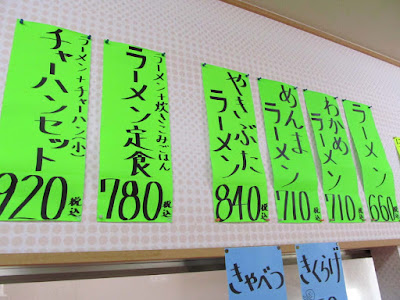 ラーメン+チャーハン(小)
チャーハンセット
920 税込
ラーメン+炊きこみごはん
ラーメン定食
780 税込
やきぶた
ラーメン
840 税込
めんま
ラーメン
710 税込
わかめ
ラーメン
710 税込
ラーメン
660
きゃべつ
きくらげ